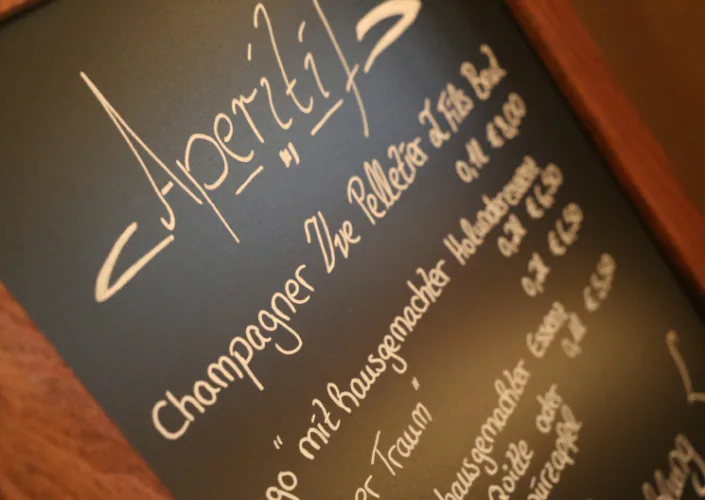 Aperitif
Champagner Vve Pelletier & Fils Brut
0,1l €
go" mit hausgemachter Holunderessenz
0,2l € 6,50
er Traum"
0,2l € 6,50
hausgemachter Essenz
0,2l € 5,50
Quitte oder